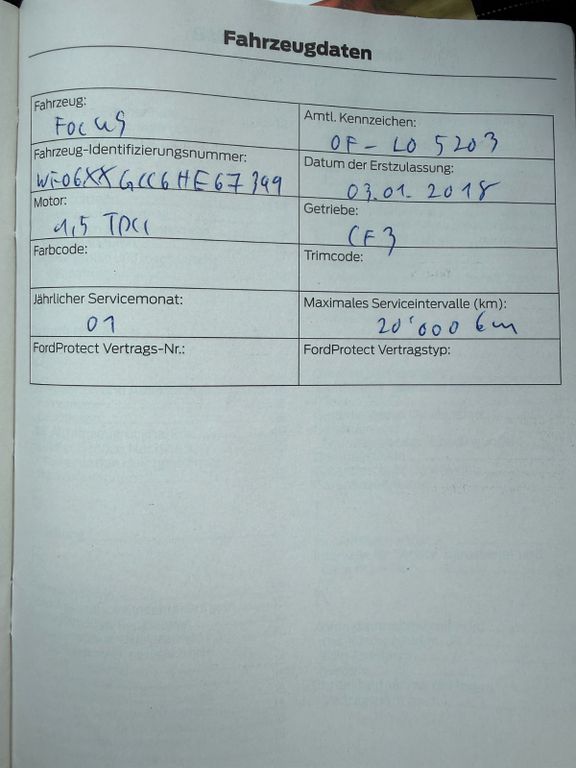 Fahrzeugdaten
Fahrzeug:
Focus
Amtl. Kennzeichen:
OF - LO 5203
Fahrzeug-Identifizierungsnummer:
WF06XXGCC6HE67399
Datum der Erstzulassung:
03.01.2018
Motor:
1,5 TDCi
Getriebe:
CF3
Farbcode:
Trimcode:
Jährlicher Servicemonat:
01
Maximales Serviceintervalle (km):
20'000 km
FordProtect Vertrags-Nr.:
FordProtect Vertragstyp: